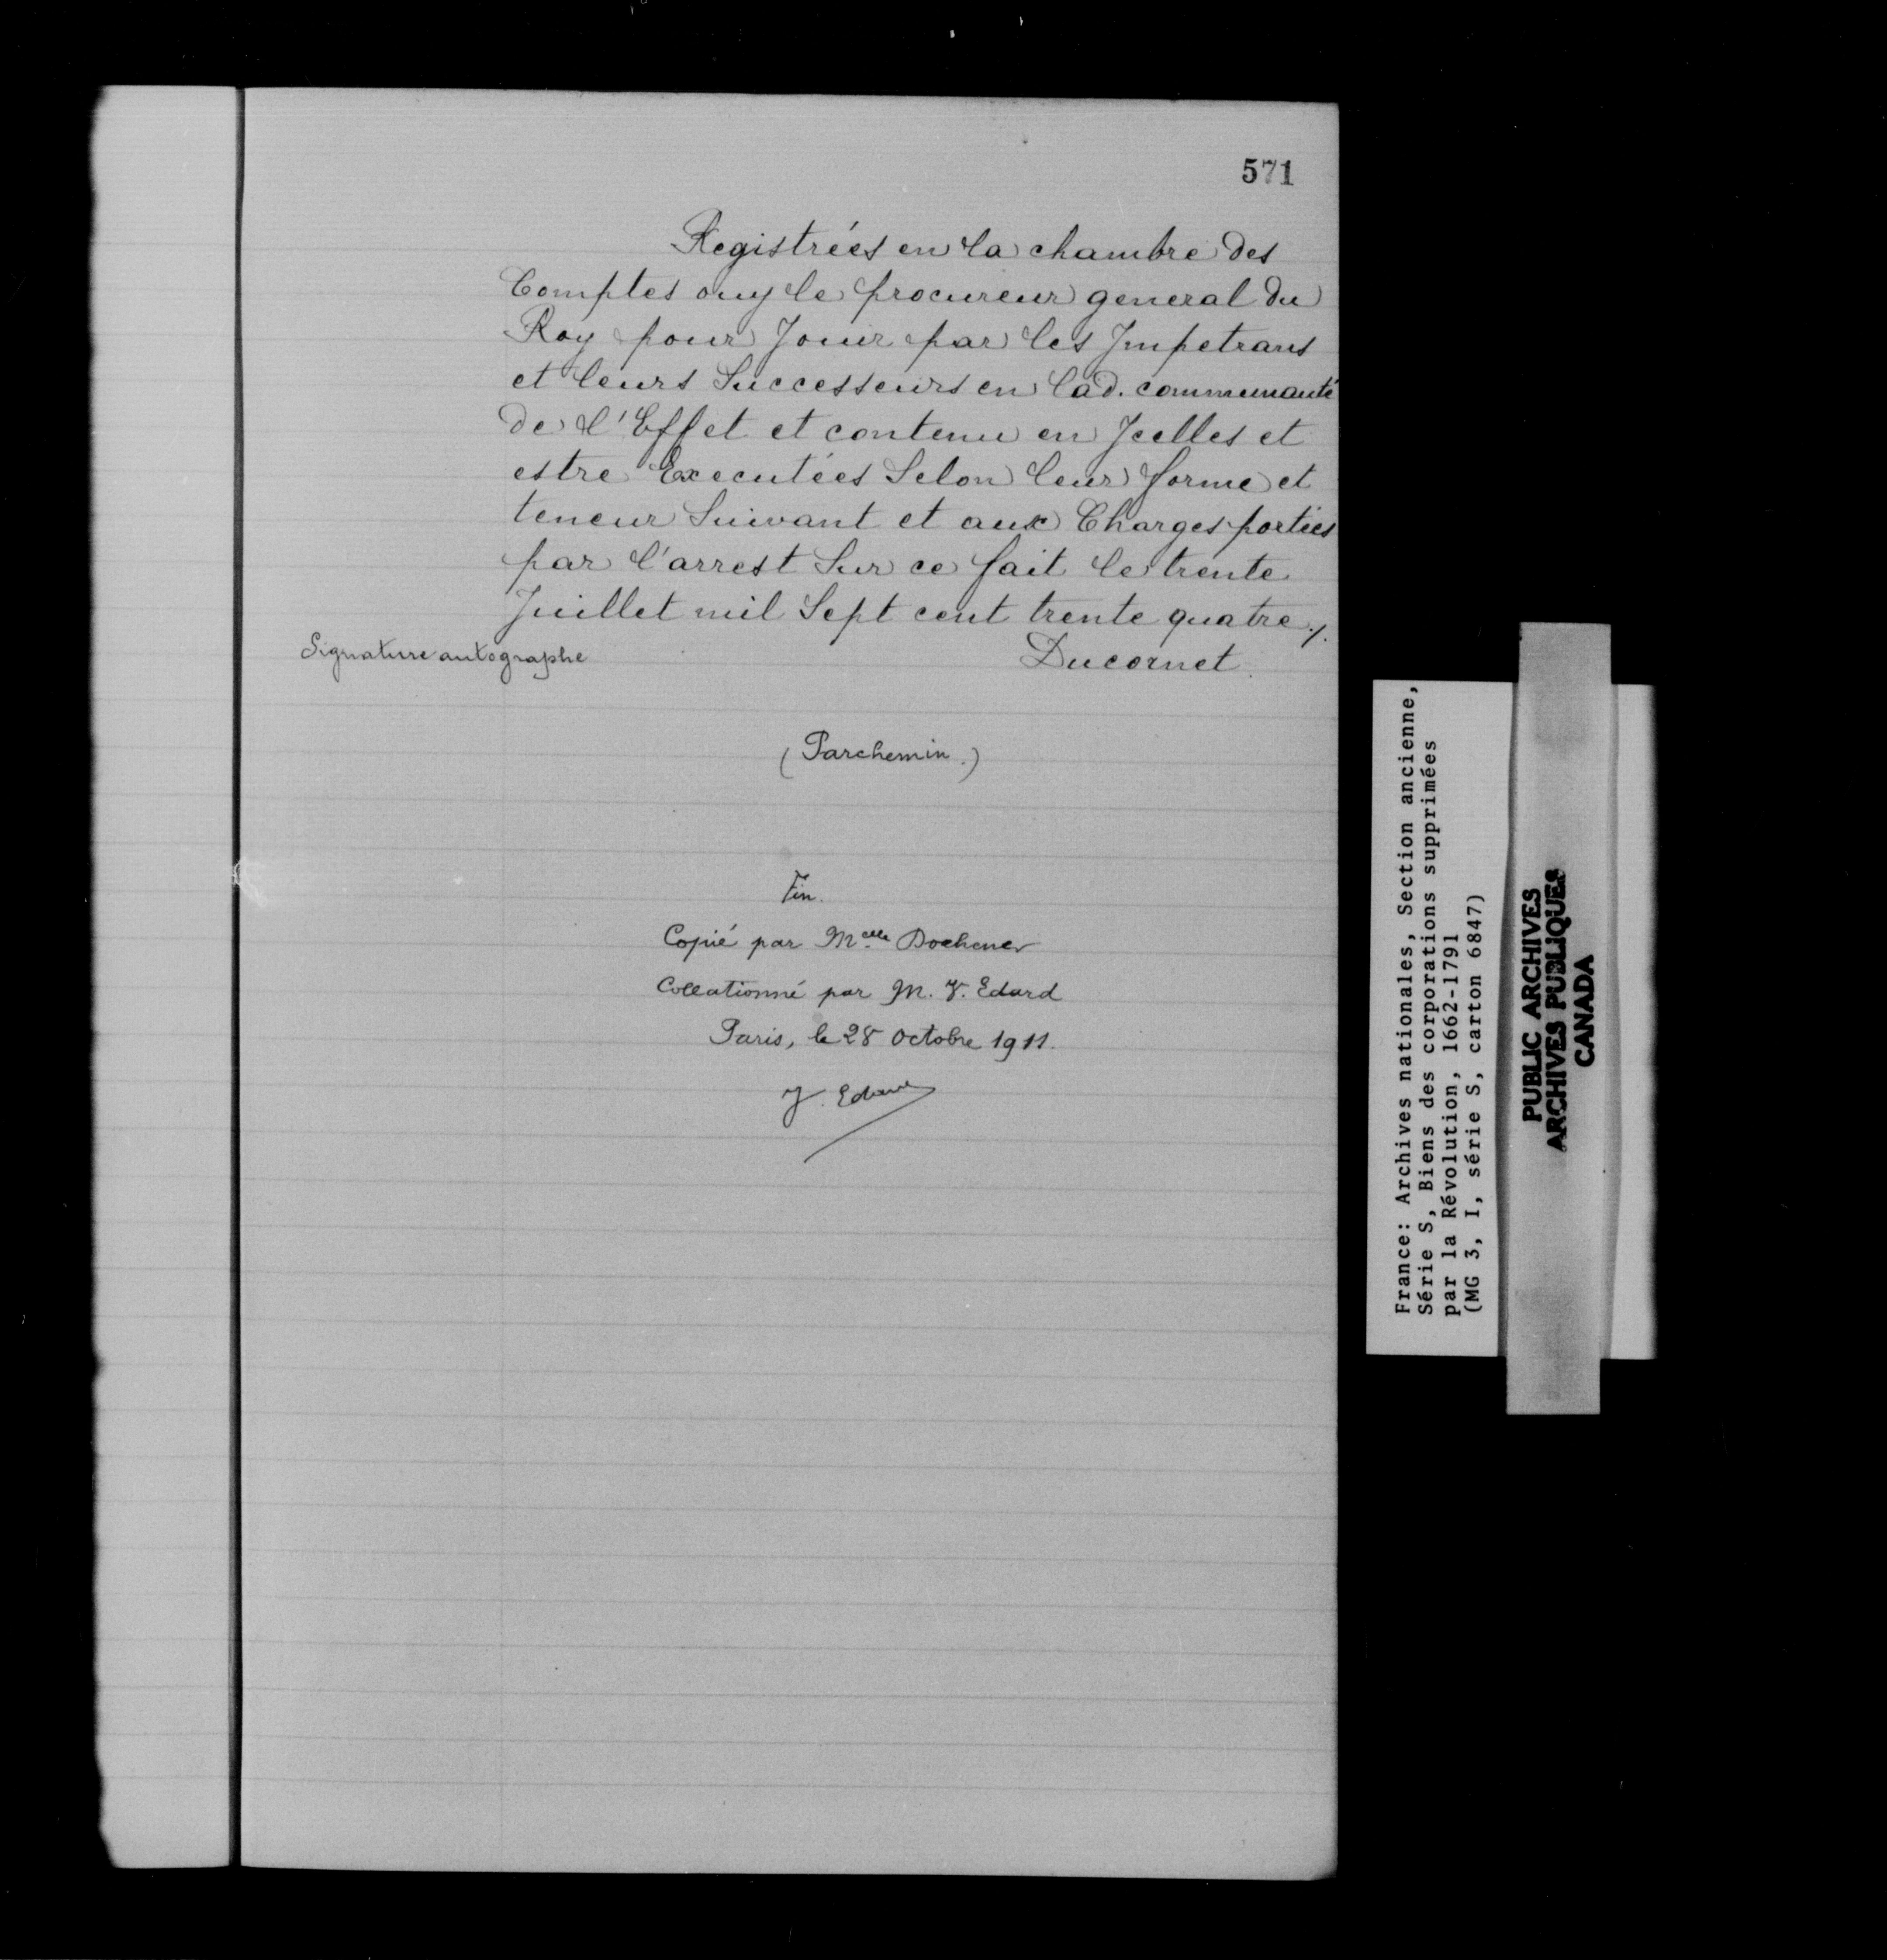 571
Registrées en la chambre des
Comptes ouy le procureur general du
Roy pour Jouir par les Impetrans
et leurs Successeurs en lad. communauté
de l'Effet et contenu en Jcelles et
estre Executées Selon leur forme et
teneur Suivant et aux Charges portées
par l'arrest Sur ce fait le trente
Juillet mil Sept cent trente quatre ./.
Signature autographe
Ducornet.
(Parchemin.)
Fin.
Copié par Mcelle
Collationné par M. V. Edard
Paris, le 28 Octobre 1911.
V. Edard
France: Archives nationales, Section ancienne,
Série S, Biens des corporations supprimées
par la Révolution, 1662-1791
(MG 3, I, série S, carton 6847)
PUBLIC ARCHIVES
ARCHIVES PUBLIQUES
CANADA